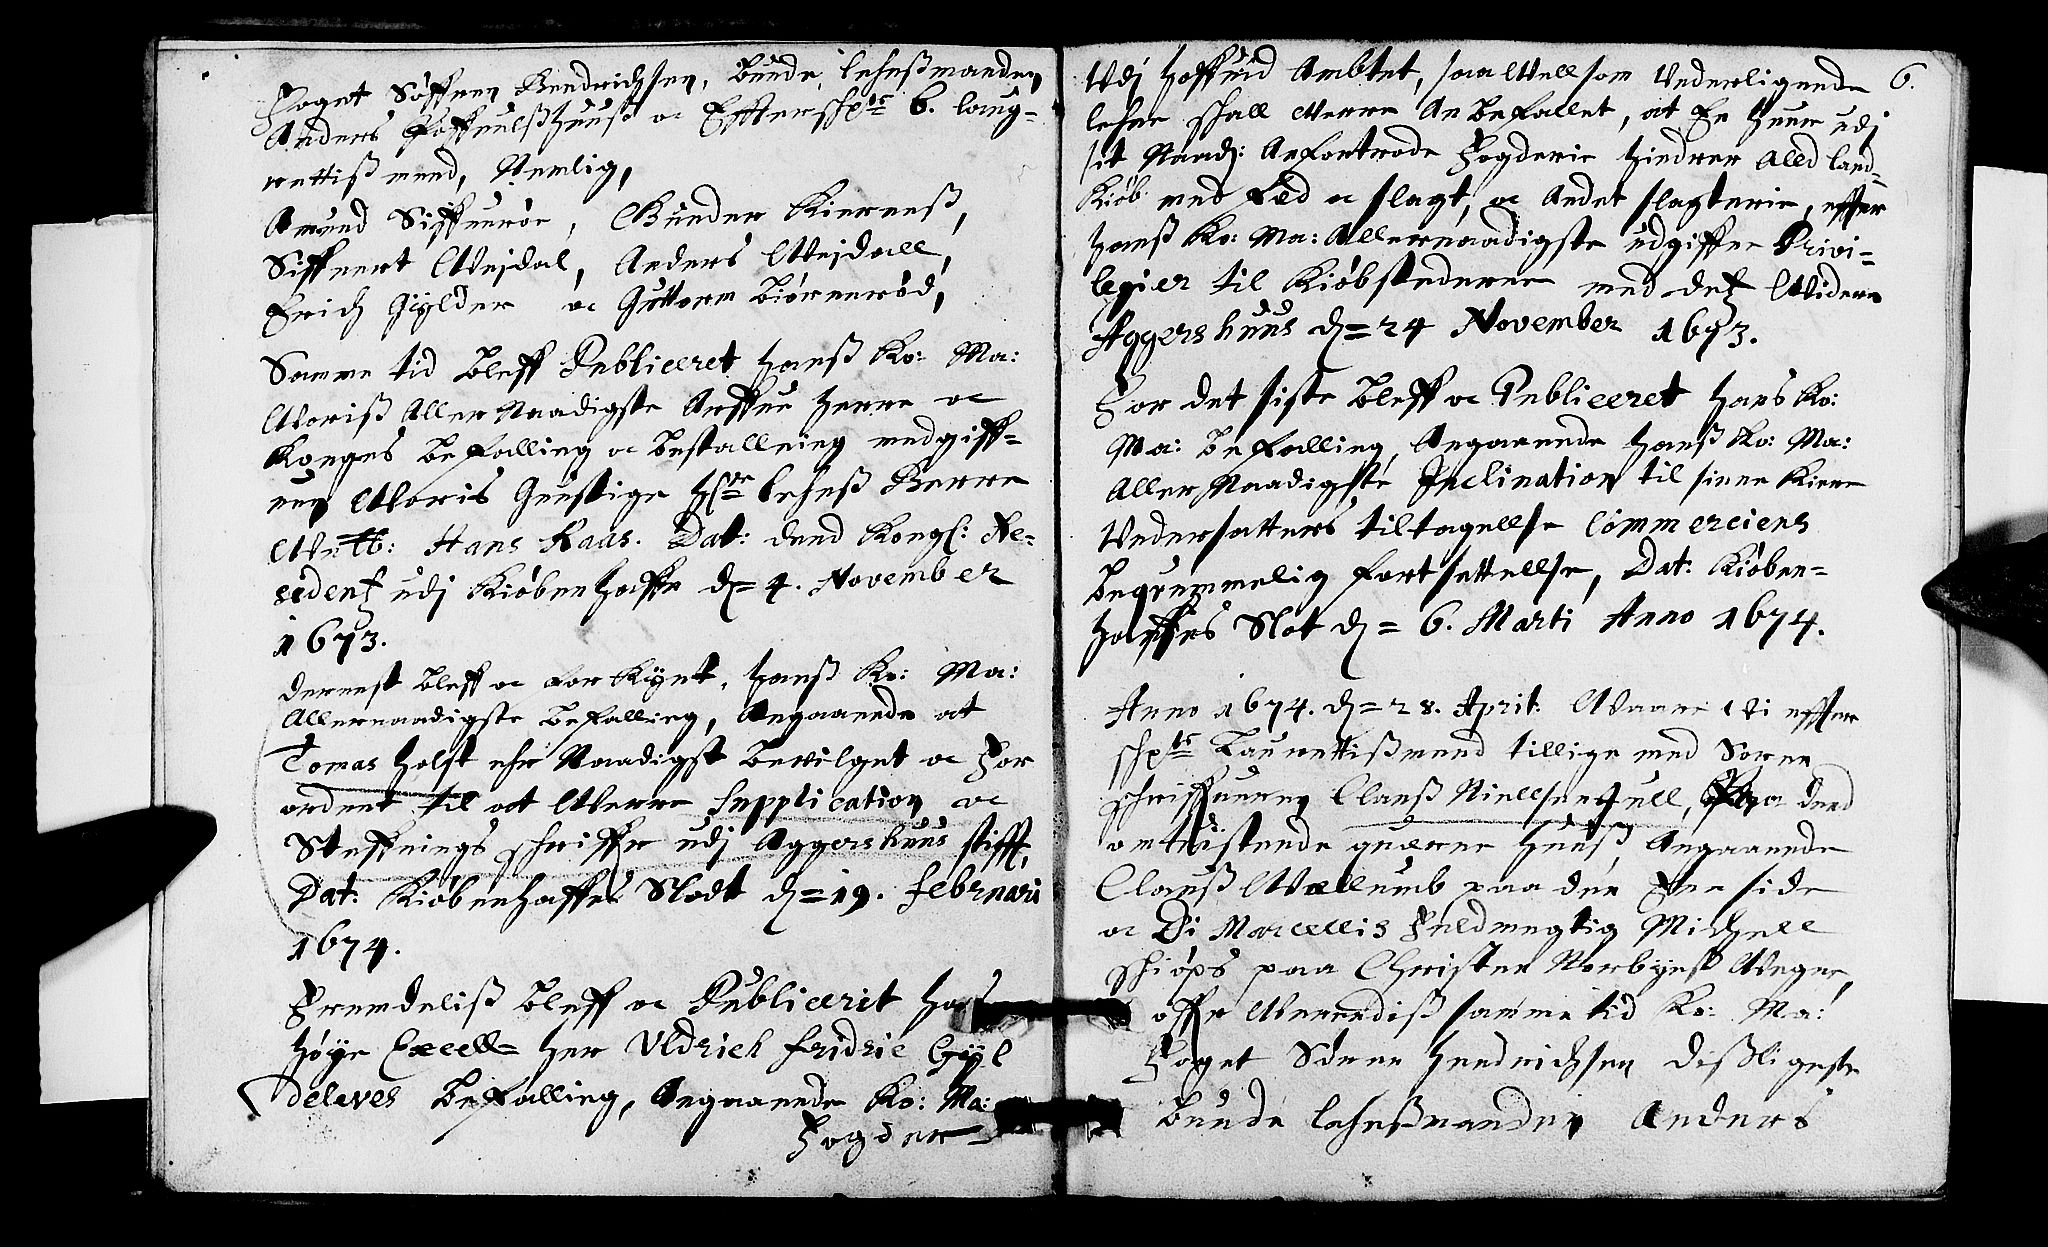 Foget Søffren Hendrichsen, Bunde lehnßmanden
Anders Foffuelßhuuß oc Effterschr: 6. laug-
rettiß mend, Nemlig,
Amund Siffuerøe, Gunder Kierneß,
Siffuert Weidal, Anders Weidall,
Erich Gylder oc Guttorm Biørnerød,
Samme tid bleff Publiceret hanß Ko: Ma:
Woriß Aller Naadigste Arffue Herre oc
Konges Befalling oc bestallning medgiff-
uen Woris Gunstige H: lehnß Herre
Welb: Hans Kaas. Dat: dend Kongl: Re-
sidentz udj Kiøbenhaffn d= 4. November
1673.
dernest bleff oc forkynt, hanß Ko: Ma:
Allernaadigste befalling, Angaaende at
Tomas Holst ehr Naadigst beuilget oc For
ordnet til at Werre Supplication oc
Steffnings schriffuer udj Aggershuus stifft,
Dat: Kiøbenhaffns Slodt d= 19. Februari
1674.
Fremdeliß bleff oc Publicerit hanß
Høye Excell= Her Uldrich Fridric Gyl
deløves Befalling, Angaaende Ko: Ma:
Fogder
6.
Udj Hoffuid Ambtet, saa Well som Underligende
lehne schall Werre Anbefallet, at En huer udj
sit Naad: Anfortrode Fogderie hindrer All land-
Kiøb med Fæd oc slagt, oc Andet slagterie, effter
hanß Ko: Ma: Allernaadigste udgiffne Privi-
legier til Kiøbstederne med dess Widere
Aggershuus d= 24 November 1673.
For det siste bleff oc Publiceret Hans Ko:
Ma: Befalling, Angaaende hanß Ko: Ma:
Aller Naadigste Inclination til sinne Kiere
Undersatters tiltagellse Commerciens
Begvemmelig fortsettellse, Dat: Kiøben-
haffns Slot d= 6. Marti Anno 1674.
Anno 1674. d= 28. April: Waare Wi effter
schr: Laurettißmend tillige med Soren
schriffueren Clauß Niellsen Juell, paa dend
omtuistende querne Huuß, Angaaende
Clauß Wællumb paa den Ene side
oc Di Marcellis Fuldmegtig Michell
Schiøps paa Christen Norbyeß Wegne,
offuer Werrendiß samme tid Ko: Ma:
Foget Søren Hendrichsen dißligeste
Bunde lehnßmanden Anders